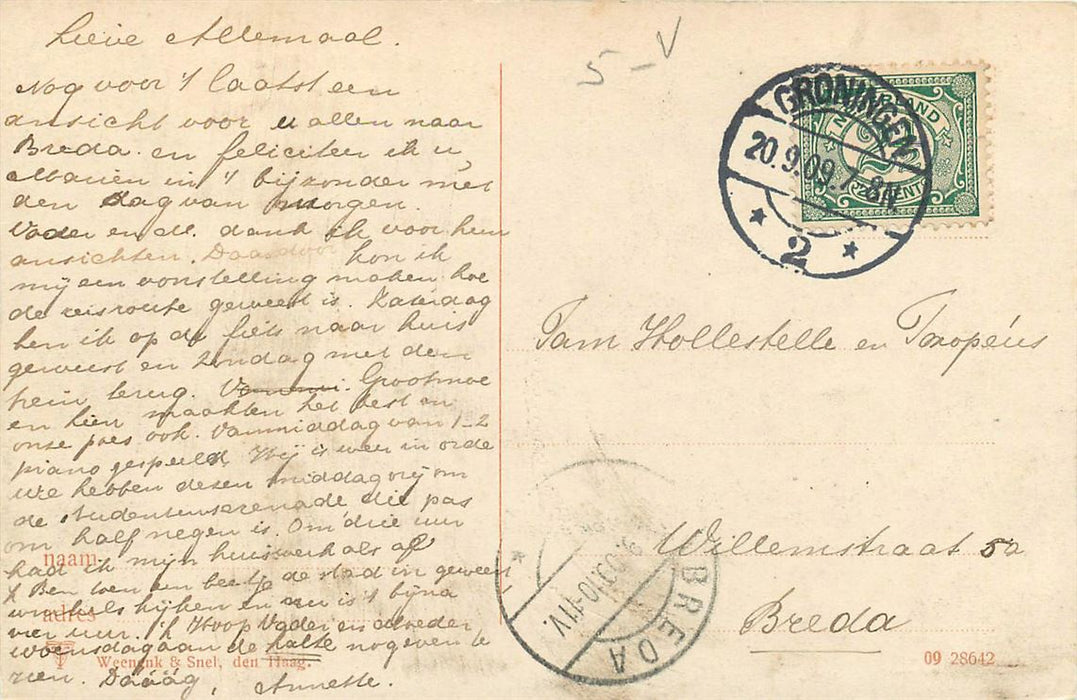 Lieve Allemaal.
Nog voor 't laatst een
ansicht voor u allen naar
Breda. en feliciteer ik u,
Mariën in 't bijzonder met
den dag van morgen.
Vader en M. dank ik voor hun
ansichten. Daardoor kon ik
mij een voorstelling maken hoe
de reisroute geweest is. Zaterdag
ben ik op de fiets naar huis
geweest en Zondag met den
trein terug. Grootmoe
en hier maakten het best en
onze poes ook. Vanmiddag van 1-2
piano gespeeld. Zij is weer in orde
We hebben dezen middag vrij om
de studentenserenade die pas
om half negen is. Om drie uur
had ik mijn huiswerk als af
Ben toen een beetje de stad in geweest
winkels kijken en nu is 't bijna
vier uur. 'k Hoop Vader en Moeder
woensdag aan de halte nog even te
zien. Dáááág, Annette.
naam
adres
Weenenk & Snel, den Haag.
5 - V
GRONINGEN
20.9.09.7-8N
2
NEDERLAND
2½ CENT
Fam Hollestelle en Tropéus
Willemstraat 50
Breda
BREDA
9.09.10-11V.
09 28642